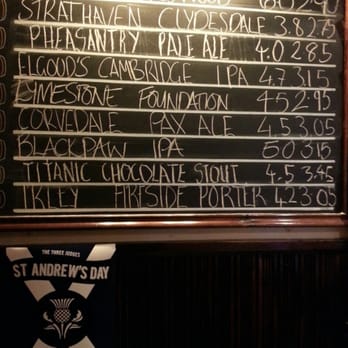 STRATHAVEN CLYDESDALE 3.8 2.75
PHEASANTRY PALE ALE 4.0 2.85
ELGOOD'S CAMBRIDGE IPA 4.7 3.15
LYMESTONE FOUNDATION 4.5 2.95
CORVEDALE PAX ALE 4.5 3.05
BLACKPAW IPA 5.0 3.15
TITANIC CHOCOLATE STOUT 4.5 3.45
ILKLEY FIRESIDE PORTER 4.2 3.05
THE THREE JUDGES
ST ANDREW'S DAY